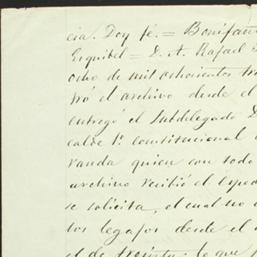 cia. Doy fé. = Bonifac
Esquibel = D. A. Rafael
ocho de mil ochocientos tre
tró el archivo desde el
entregó el Subdelegado D
calde 1º constitucional
randa quien con todo
archivo recibió el Espedi
se solicita, el cual no
los legajos desde el
el de treinta; lo que